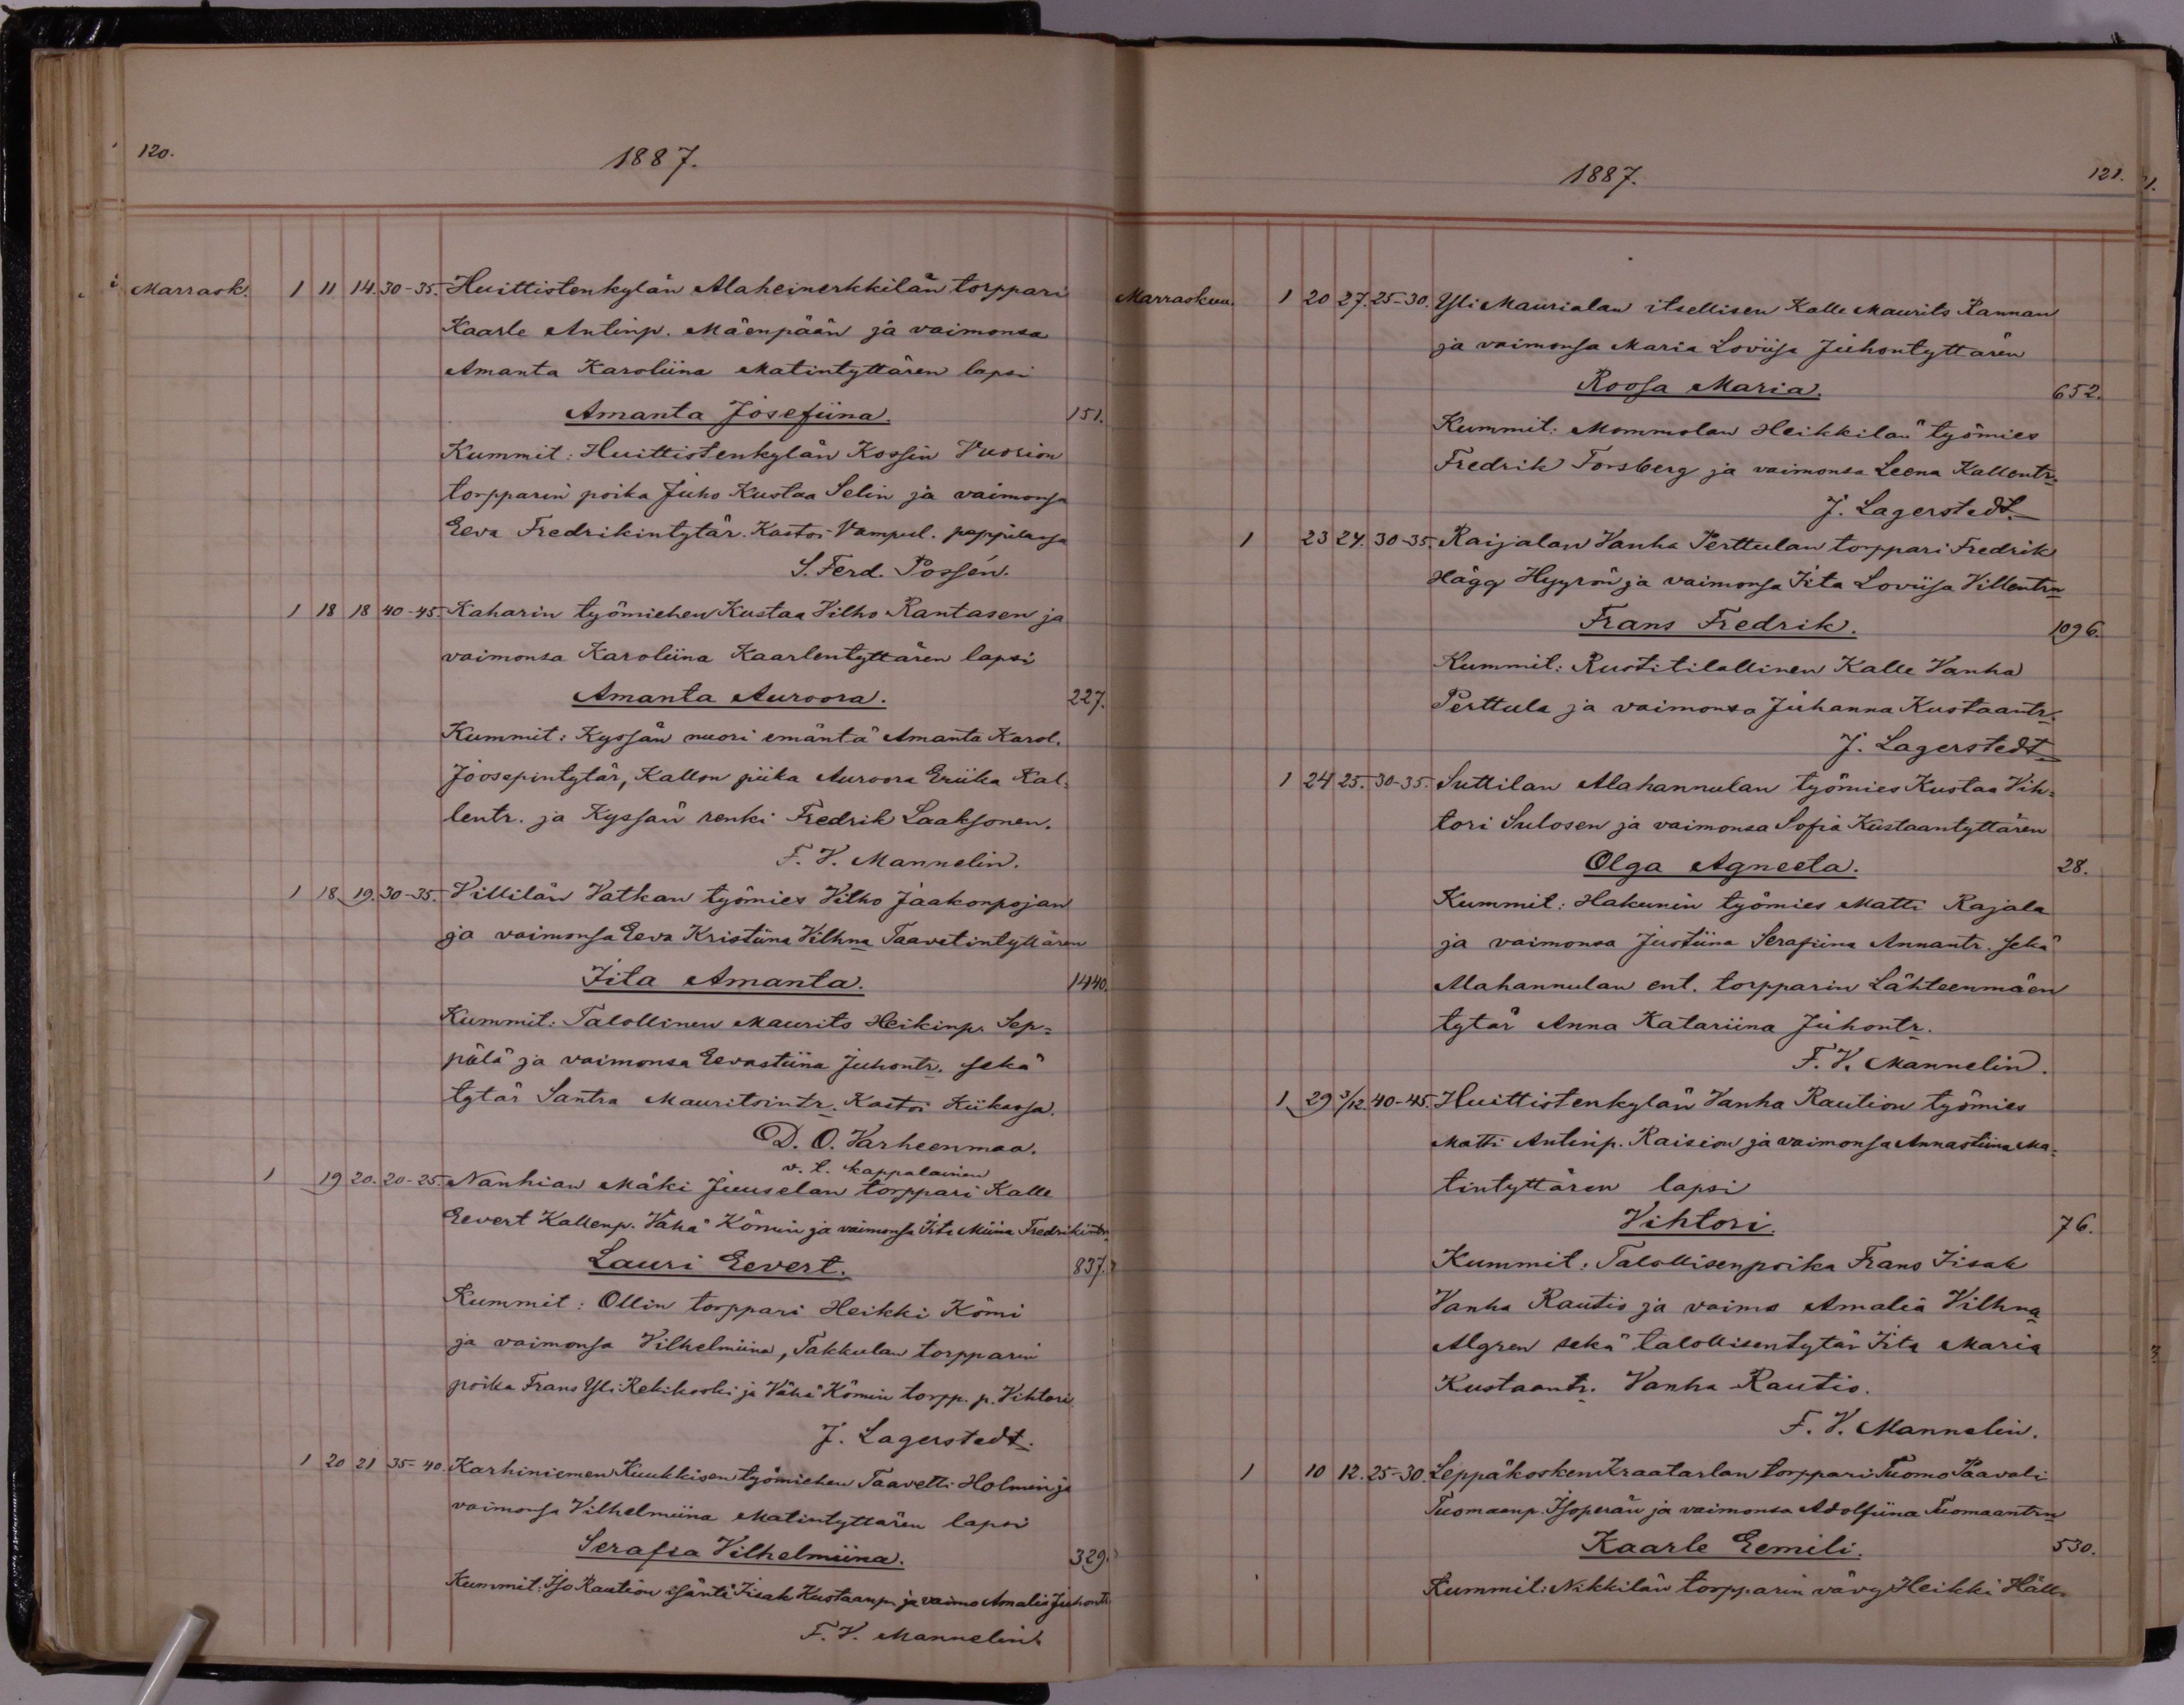 120.
1887.
Marrask. 1 11 14. 30-35. Huittistenkylän Alaheinerkkilän torppari
Kaarle Antinp. Mäenpään ja vaimonsa
Amanta Karoliina Matintyttären lapsi
Amanta Josefiina. 151.
Kummit: Huittistenkylän Kossin Vuorion
torpparin poika Juho Kustaa Selin ja vaimonsa
Eeva Fredrikintytär. Kastoi Vampul. pappilassa
S. Ferd. Possén.
1 18 18 40-45. Kaharin työmiehen Kustaa Vilho Rantasen ja
vaimonsa Karoliina Kaarlentyttären lapsi
Amanta Auroora. 227.
Kummit: Kyssän nuori emäntä Amanta Karol.
Joosepintytär, Kallon piika Auroora Eriika Kal-
lentr. ja Kyssän renki Fredrik Laaksonen.
F. V. Mannelin.
1 18 19. 30-35. Villilän Vatkan työmies Vilho Jaakonpojan
ja vaimonsa Eeva Kristiina Vilhna Taavetintyttären
Iita Amanta. 1440.
Kummit: Talollinen Maurits Heikinp. Sep-
pälä ja vaimonsa Eevastiina Juhontr. sekä
tytär Santra Mauritsintr. Kastoi Kiikassa.
D. O. Varheenmaa.
v. t. kappalainen
1 19 20. 20-25. Nanhian Mäki Juuselan torppari Kalle
Eevert Kallenp. Vähä Kömin ja vaimonsa Iita Miina Fredrikintrn
Lauri Eevert. 837.
Kummit: Ollin torppari Heikki Kömi
ja vaimonsa Vilhelmiina, Takkulan torpparin
poika Frans Yli Rekikoski ja Vähä Kömin torpp. p. Vihtori
J. Lagerstedt.
1 20 21 35-40. Karhiniemen Kuukkisen työmiehen Taavetti Holmin ja
vaimonsa Vilhelmiina Matintyttären lapsi
Serafia Vilhelmiina. 329.
Kummit: Iso Raution isäntä Iisak Kustaanp. ja vaimo Amalia Juhontr.
F. V. Mannelin.
1887.
121.
Marraskuu. 1 20 27. 25-30. Yli Maurialan itsellisen Kalle Maurits Rannan
ja vaimonsa Maria Loviisa Juhontyttären
Roosa Maria. 652.
Kummit: Mommolan Heikkilän työmies
Fredrik Forsberg ja vaimonsa Leena Kallentr.
J. Lagerstedt.
1 23 24. 30-35. Raijalan Vanha Perttulan torppari Fredrik
Hägg Hyyrön ja vaimonsa Iita Loviisa Villentrn
Frans Fredrik. 1096.
Kummit: Rustitilallinen Kalle Vanha
Perttula ja vaimonsa Juhanna Kustaantr.
J. Lagerstedt
1 24 25. 30-35. Suttilan Alahannulan työmies Kustaa Vih-
tori Sulosen ja vaimonsa Sofia Kustaantyttären
Olga Agneeta. 28.
Kummit: Hakunin työmies Matti Rajala
ja vaimonsa Justiina Serafiina Annantr. sekä
Alahannulan ent. torpparin Lähteenmäen
tytär Anna Katariina Juhontr.
F. V. Mannelin.
1 29 3/12. 40-45. Huittistenkylän Vanha Raution työmies
Matti Antinp. Raision ja vaimonsa Annastiina Ma-
tintyttären lapsi
Vihtori. 76.
Kummit: Talollisenpoika Frans Iisak
Vanha Rautio ja vaimo Amalia Vilhna
Algren sekä talollisentytär Iita Maria
Kustaantr. Vanha Rautio.
F. V. Mannelin.
1 10 12. 25-30. Leppäkosken Kraatarlan torppari Tuomo Paavali
Tuomaanp. Isoperän ja vaimonsa Adolfiina Tuomaantrn
Kaarle Eemili. 530.
Kummit: Nikkilän torpparin vävy Heikki Häll-